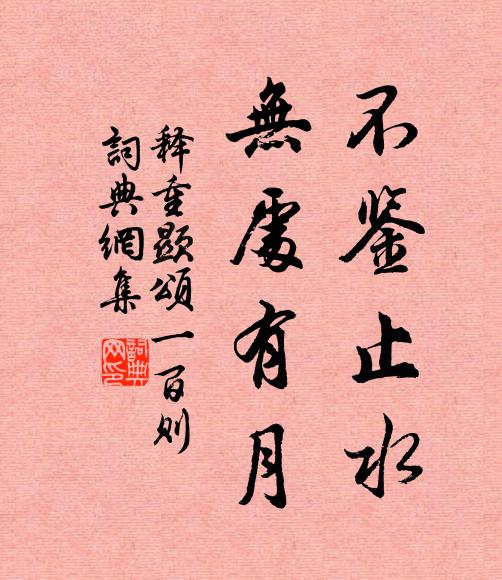 不鉴止水
無處有月
释重顯頌一百则
詞典網集
詞典
网印